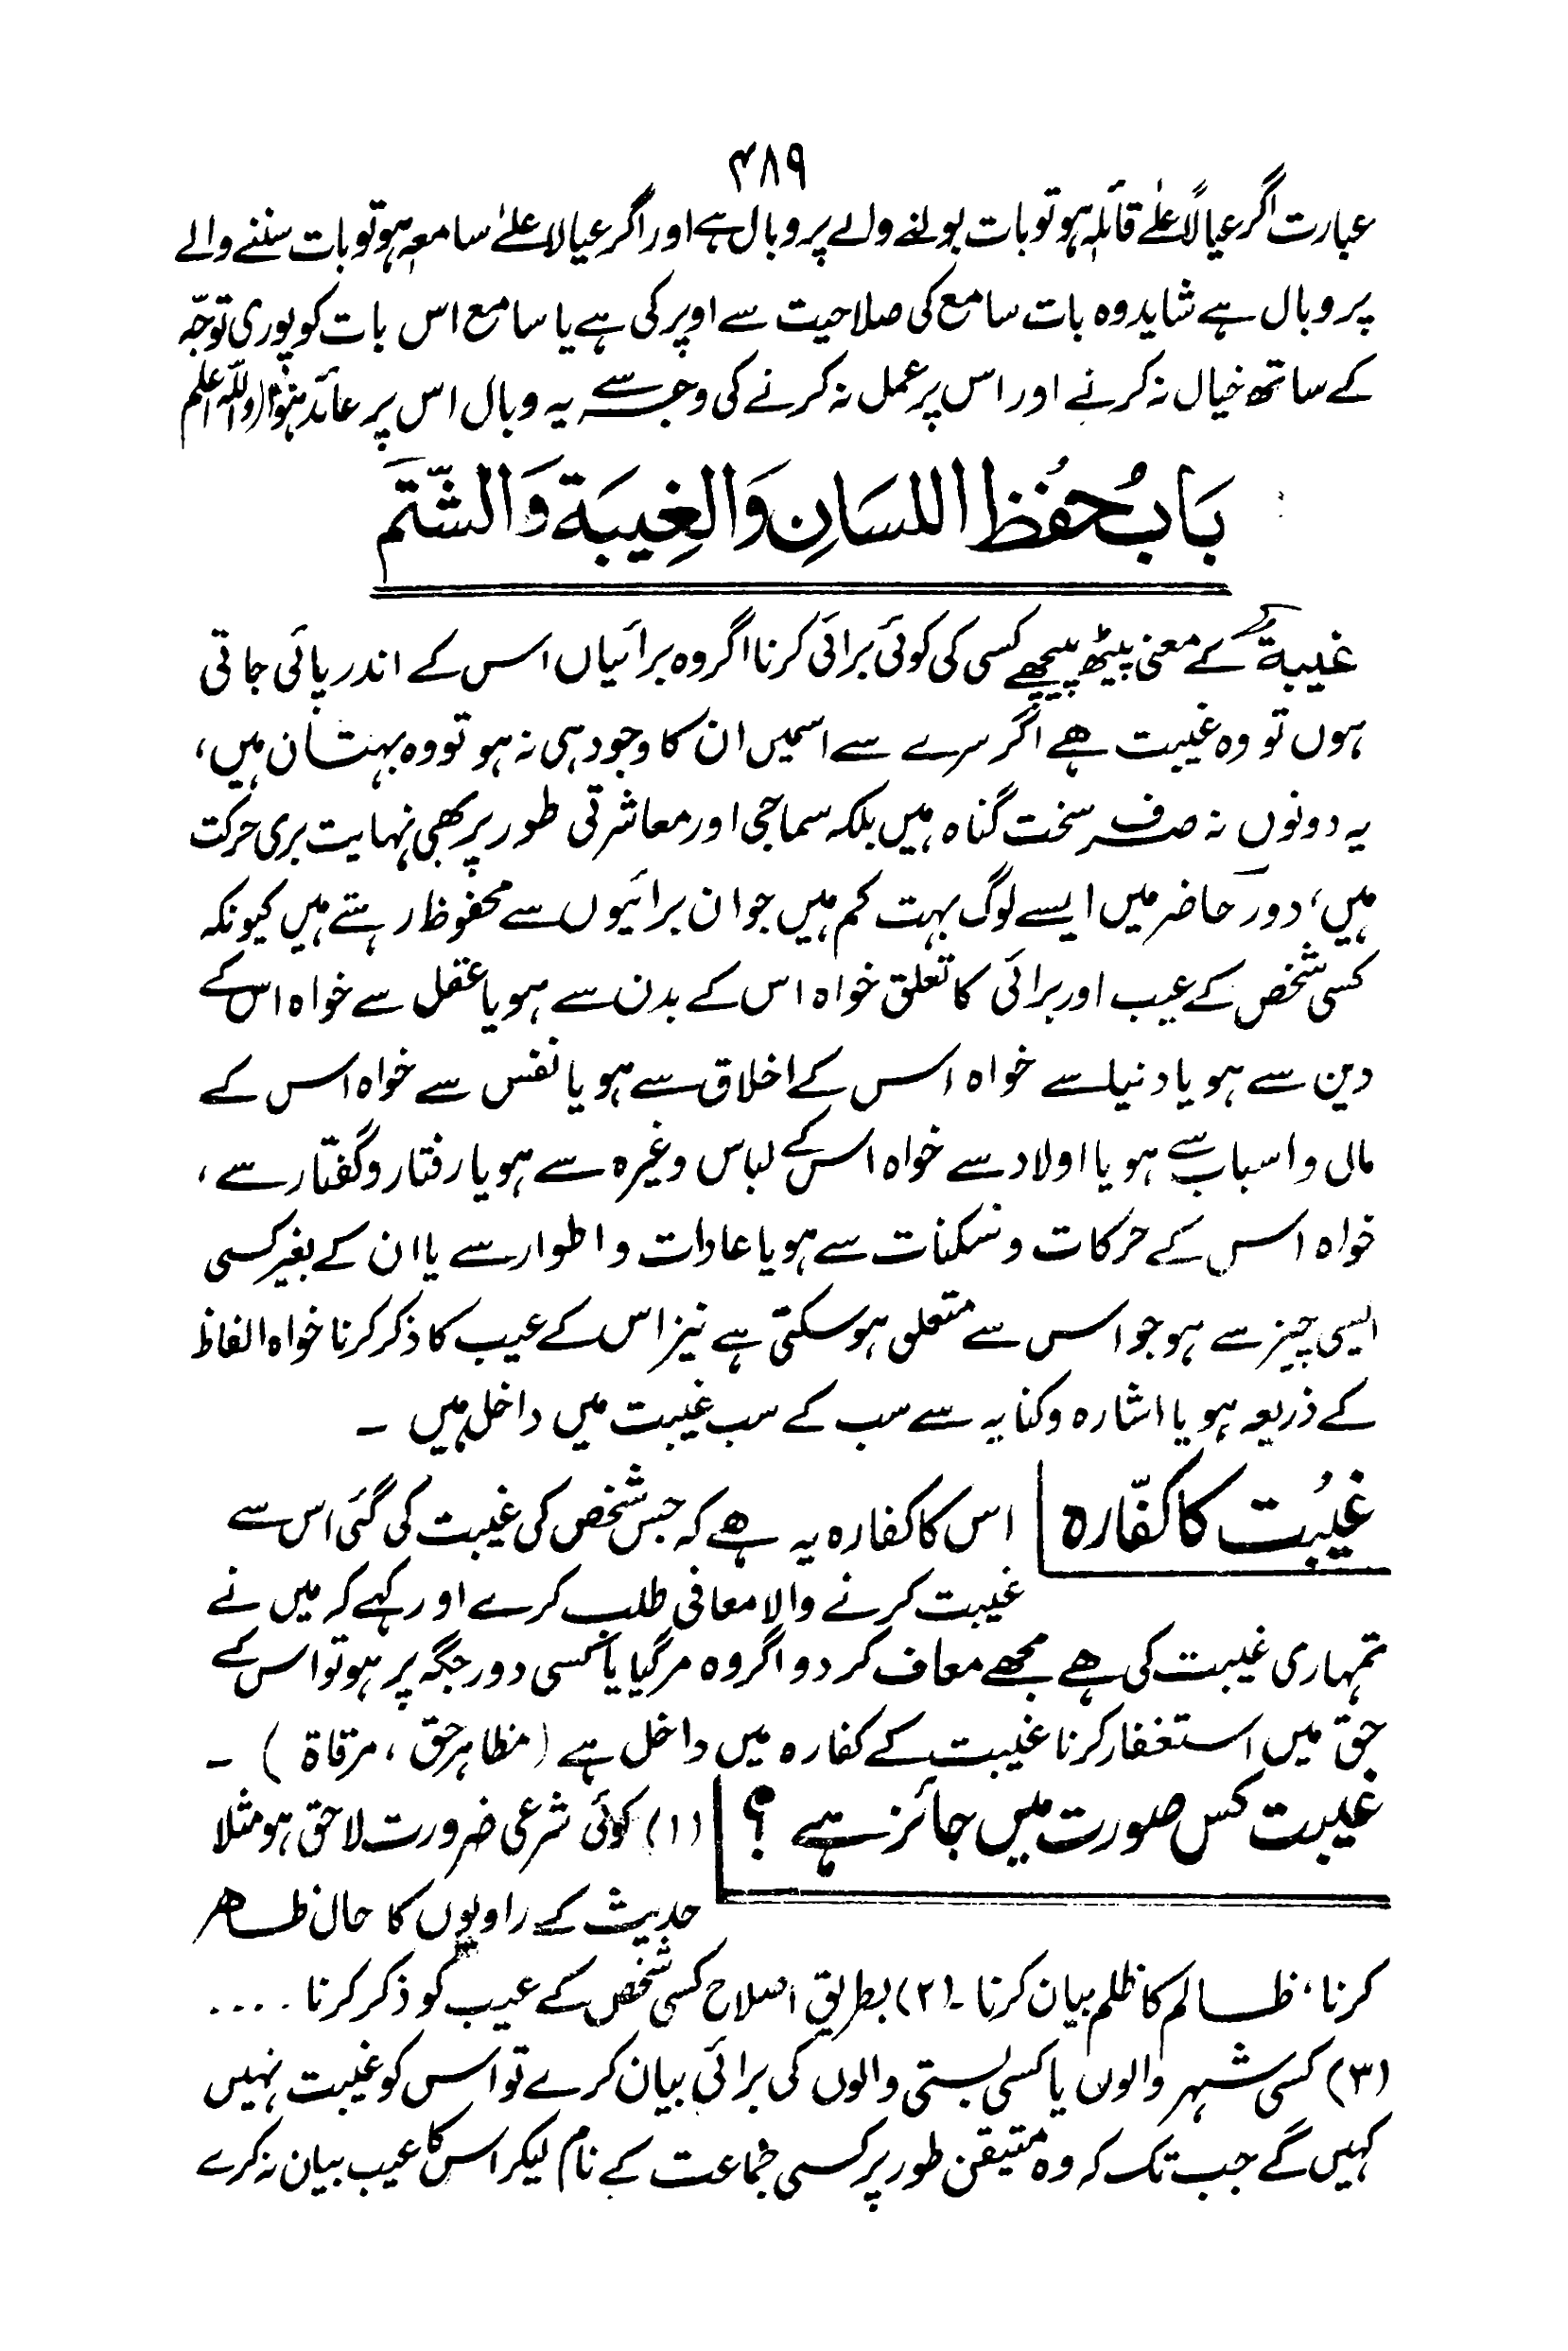 ۴۸۹
عبارت اگر عیالاً علےٰ قائلہٖ ہو تو بات بولنے والے پر وبال ہے اور اگر عیالا علےٰ سامعہٖ ہو تو بات سننے والے
پر وبال ہے شاید وہ بات سامع کی صلاحیت سے اوپر کی ہے یا سامع اس بات کو پوری توجّہ
کے ساتھ خیال نہ کرنے اور اس پر عمل نہ کرنے کی وجہ سے یہ وبال اس پر عائد ہوا (واللہ اعلم
بَابُ حفُظ اللسَانِ وَالغِیبَة وَالشّتَمَ
غیبةؒ کے معنی پیٹھ پیچھے کسی کی کوئی برائی کرنا اگر وہ برائیاں اس کے اندر پائی جاتی
ہوں تو وہ غیبت ہے اگر سرے سے اسمیں ان کا وجود ہی نہ ہو تو وہ بہتان ہیں،
یہ دونوں نہ صرف سخت گناہ ہیں بلکہ سماجی اور معاشرتی طور پر بھی نہایت بری حرکت
ہیں، دور حاضر میں ایسے لوگ بہت کم ہیں جو ان برائیوں سے محفوظ رہتے ہیں کیونکہ
کسی شخص کے عیب اور برائی کا تعلق خواہ اس کے بدن سے ہو یا عقل سے خواہ اس کے
دین سے ہو یا دنیا سے خواہ اس کے اخلاق سے ہو یا نفس سے خواہ اس کے
مال و اسباب سے ہو یا اولاد سے خواہ اس کے لباس وغیرہ سے ہو یا رفتار و گفتار سے،
خواہ اس کے حرکات و سکنات سے ہو یا عادات و اطوار سے یا ان کے بغیر کسی
ایسی چیز سے ہو جو اس سے متعلق ہوسکتی ہے نیز اس کے عیب کا ذکر کرنا خواہ الفاظ
کے ذریعہ ہو یا اشارہ و کنایہ سے سب کے سب غیبت میں داخل ہیں ۔
غیُبت کا کفّارہ اس کا کفارہ یہ ہے کہ جس شخص کی غیبت کی گئی اس سے
غیبت کرنے والا معافی طلب کرے اور کہے کہ میں نے
تمہاری غیبت کی ہے مجھے معاف کر دو اگر وہ مرگیا یا کسی دور جگہ پر ہو تو اس کے
حق میں استغفار کرنا غیبت کے کفارہ میں داخل ہے (مظاہر حق، مرقاة ) ۔
غیبت کس صورت میں جائز ہے ؟ (۱) کوئی شرعی ضرورت لاحق ہو مثلا
حدیث کے راویوں کا حال ظاہر
کرنا، ظالم کا ظلم بیان کرنا ۔ (۲) بطریق اصلاح کسی شخص کے عیب کو ذکر کرنا ....
(۳) کسی شہر والوں یا کسی بستی والوں کی برائی بیان کرے تو اس کو غیبت نہیں
کہیں گے جب تک کہ وہ متیقن طور پر کسی جماعت کے نام لیکر اس کا عیب بیان نہ کرے